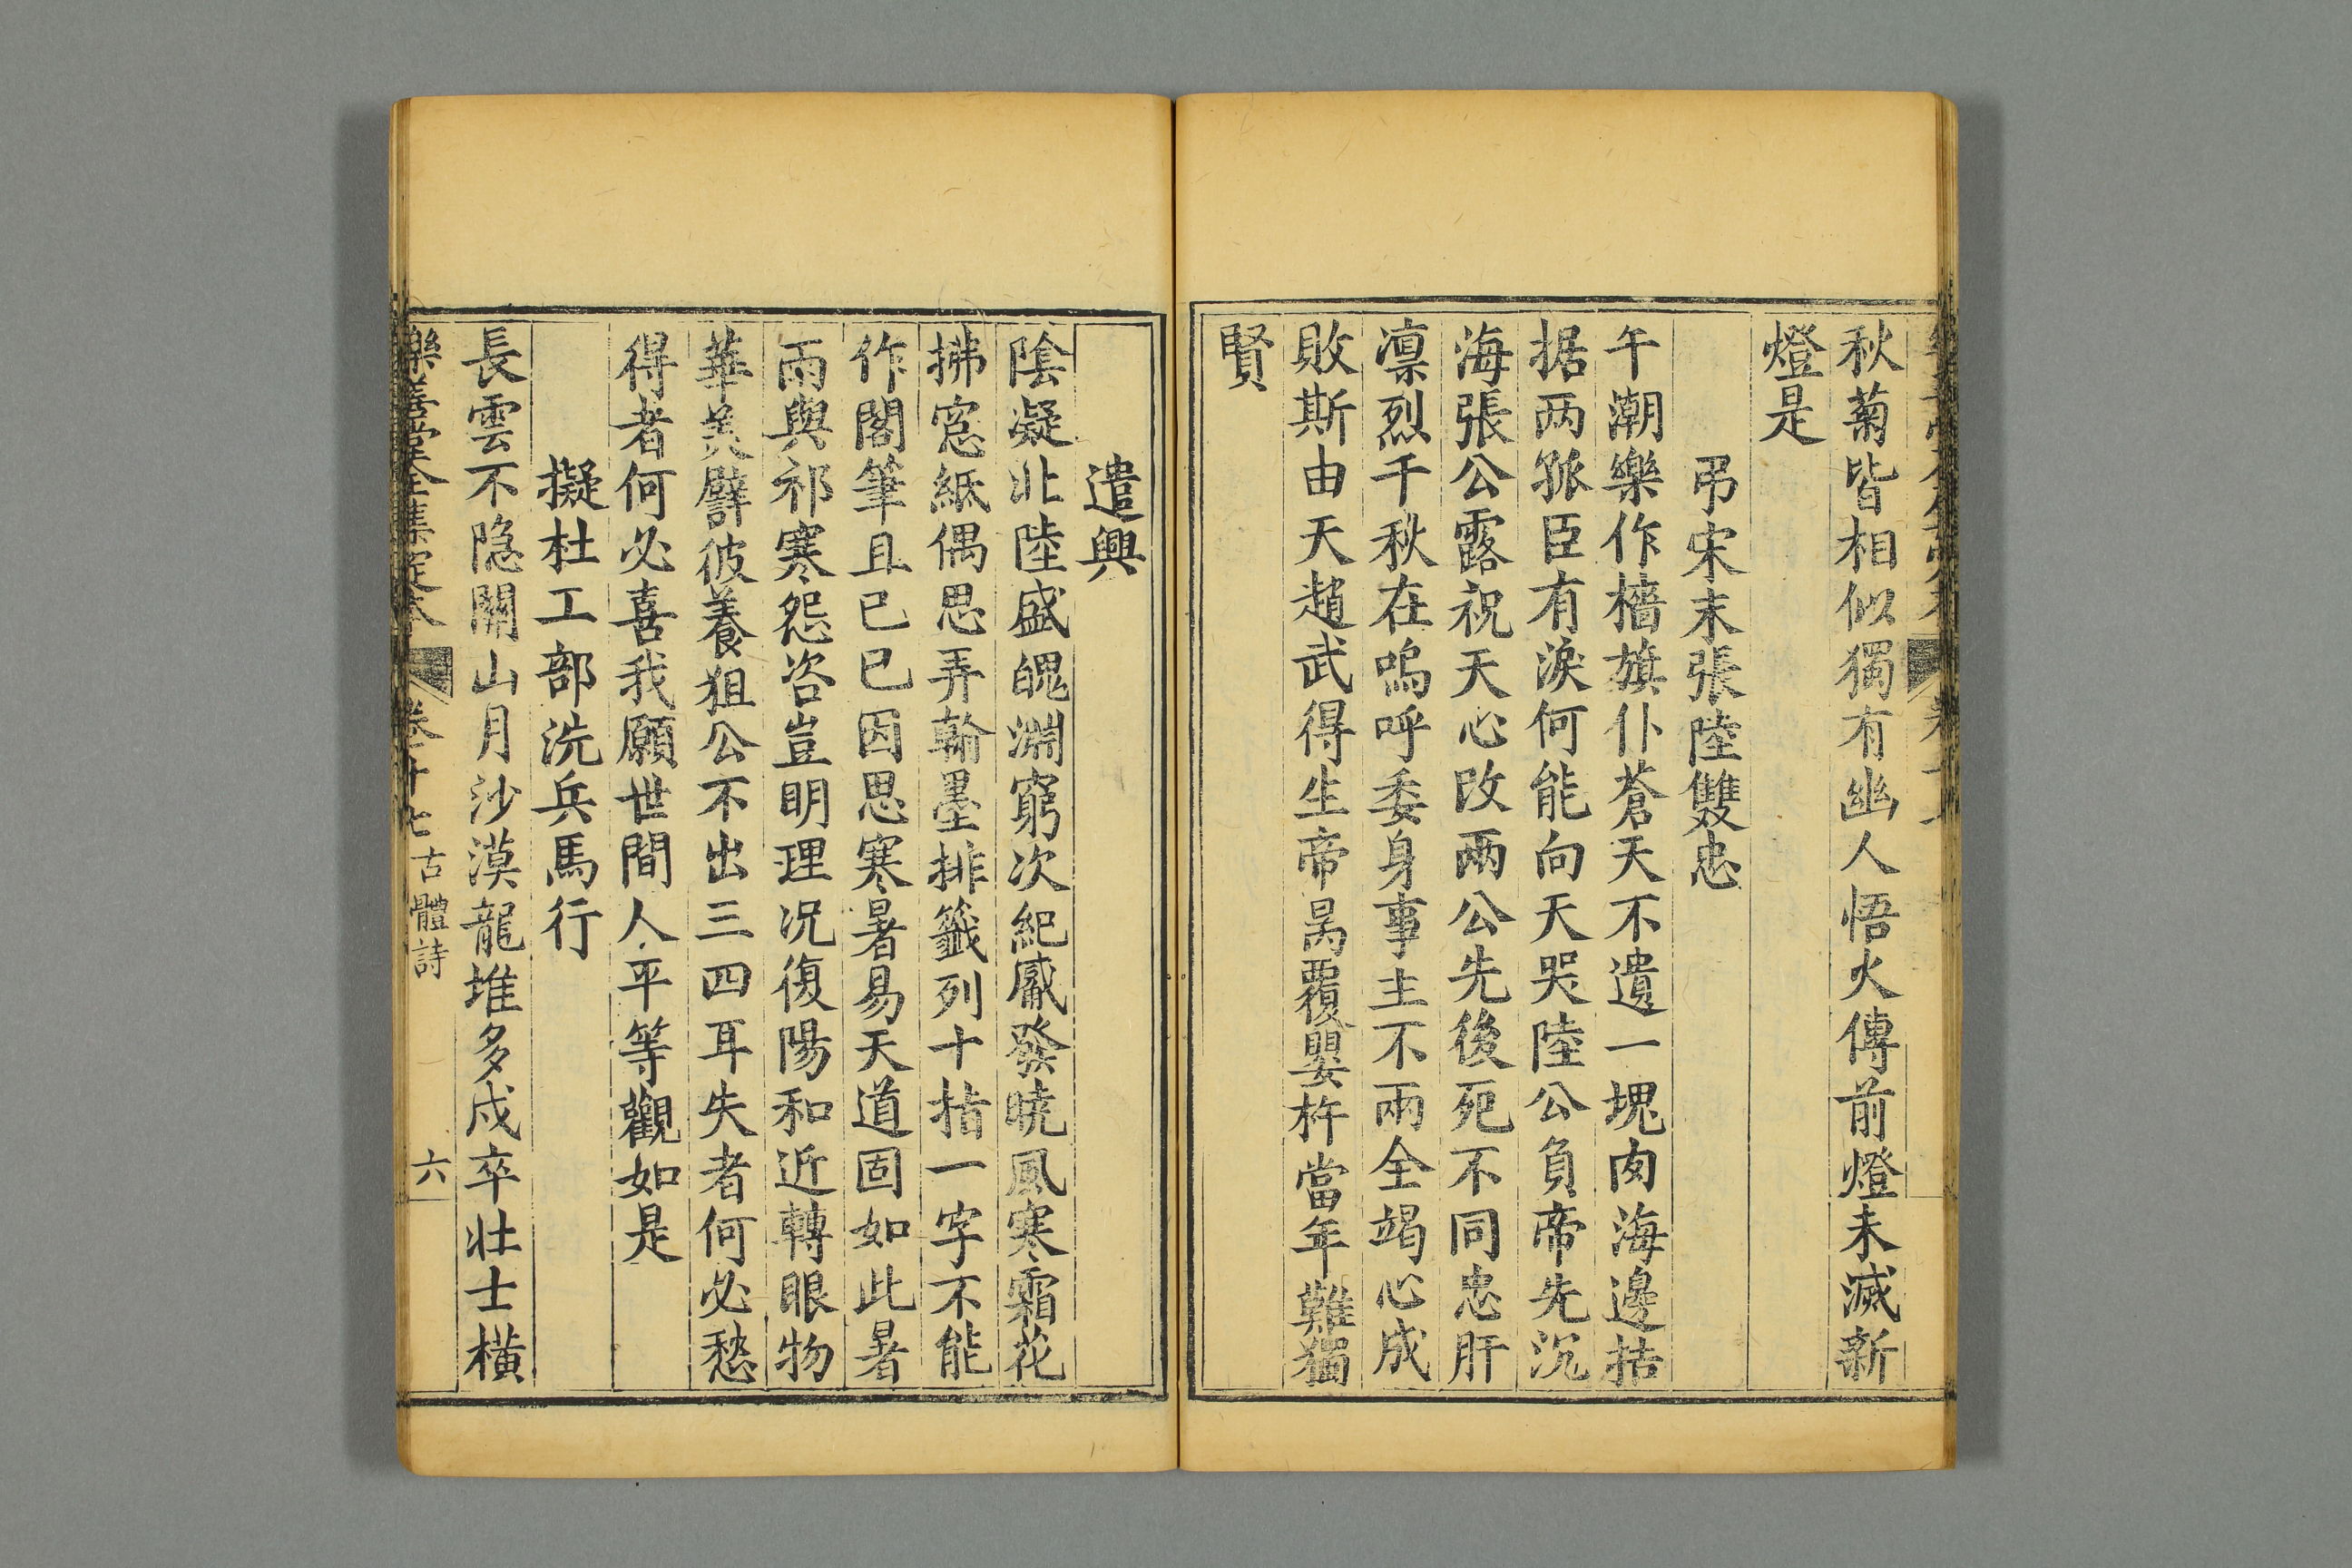 秋菊皆相似獨有幽人悟火傳前燈未滅新
燈是
弔宋末張陸雙忠
午潮樂作檣旗仆蒼天不遺一塊肉海邊拮
据两孤臣有淚何能向天哭陸公負帝先沉
海張公露祝天心改兩公先後死不同忠肝
凛烈千秋在嗚呼委身事主不兩全竭心成
敗斯由天趙武得生帝昺覆嬰杵當年難獨
賢
遣興
陰凝北陸盛魄淵窮次紀觱發曉風寒霜花
拂窓紙偶思弄翰墨排籤列十指一字不能
作閣筆且已已因思寒暑易天道固如此暑
雨與祁寒怨咨豈明理况復陽和近轉眼物
華美譬彼養狙公不出三四耳失者何必愁
得者何必喜我願世間人平等觀如是
擬杜工部洗兵馬行
長雲不隱關山月沙漠龍堆多戍卒壯士橫
樂善堂全集定本 卷二十七 古體詩 六